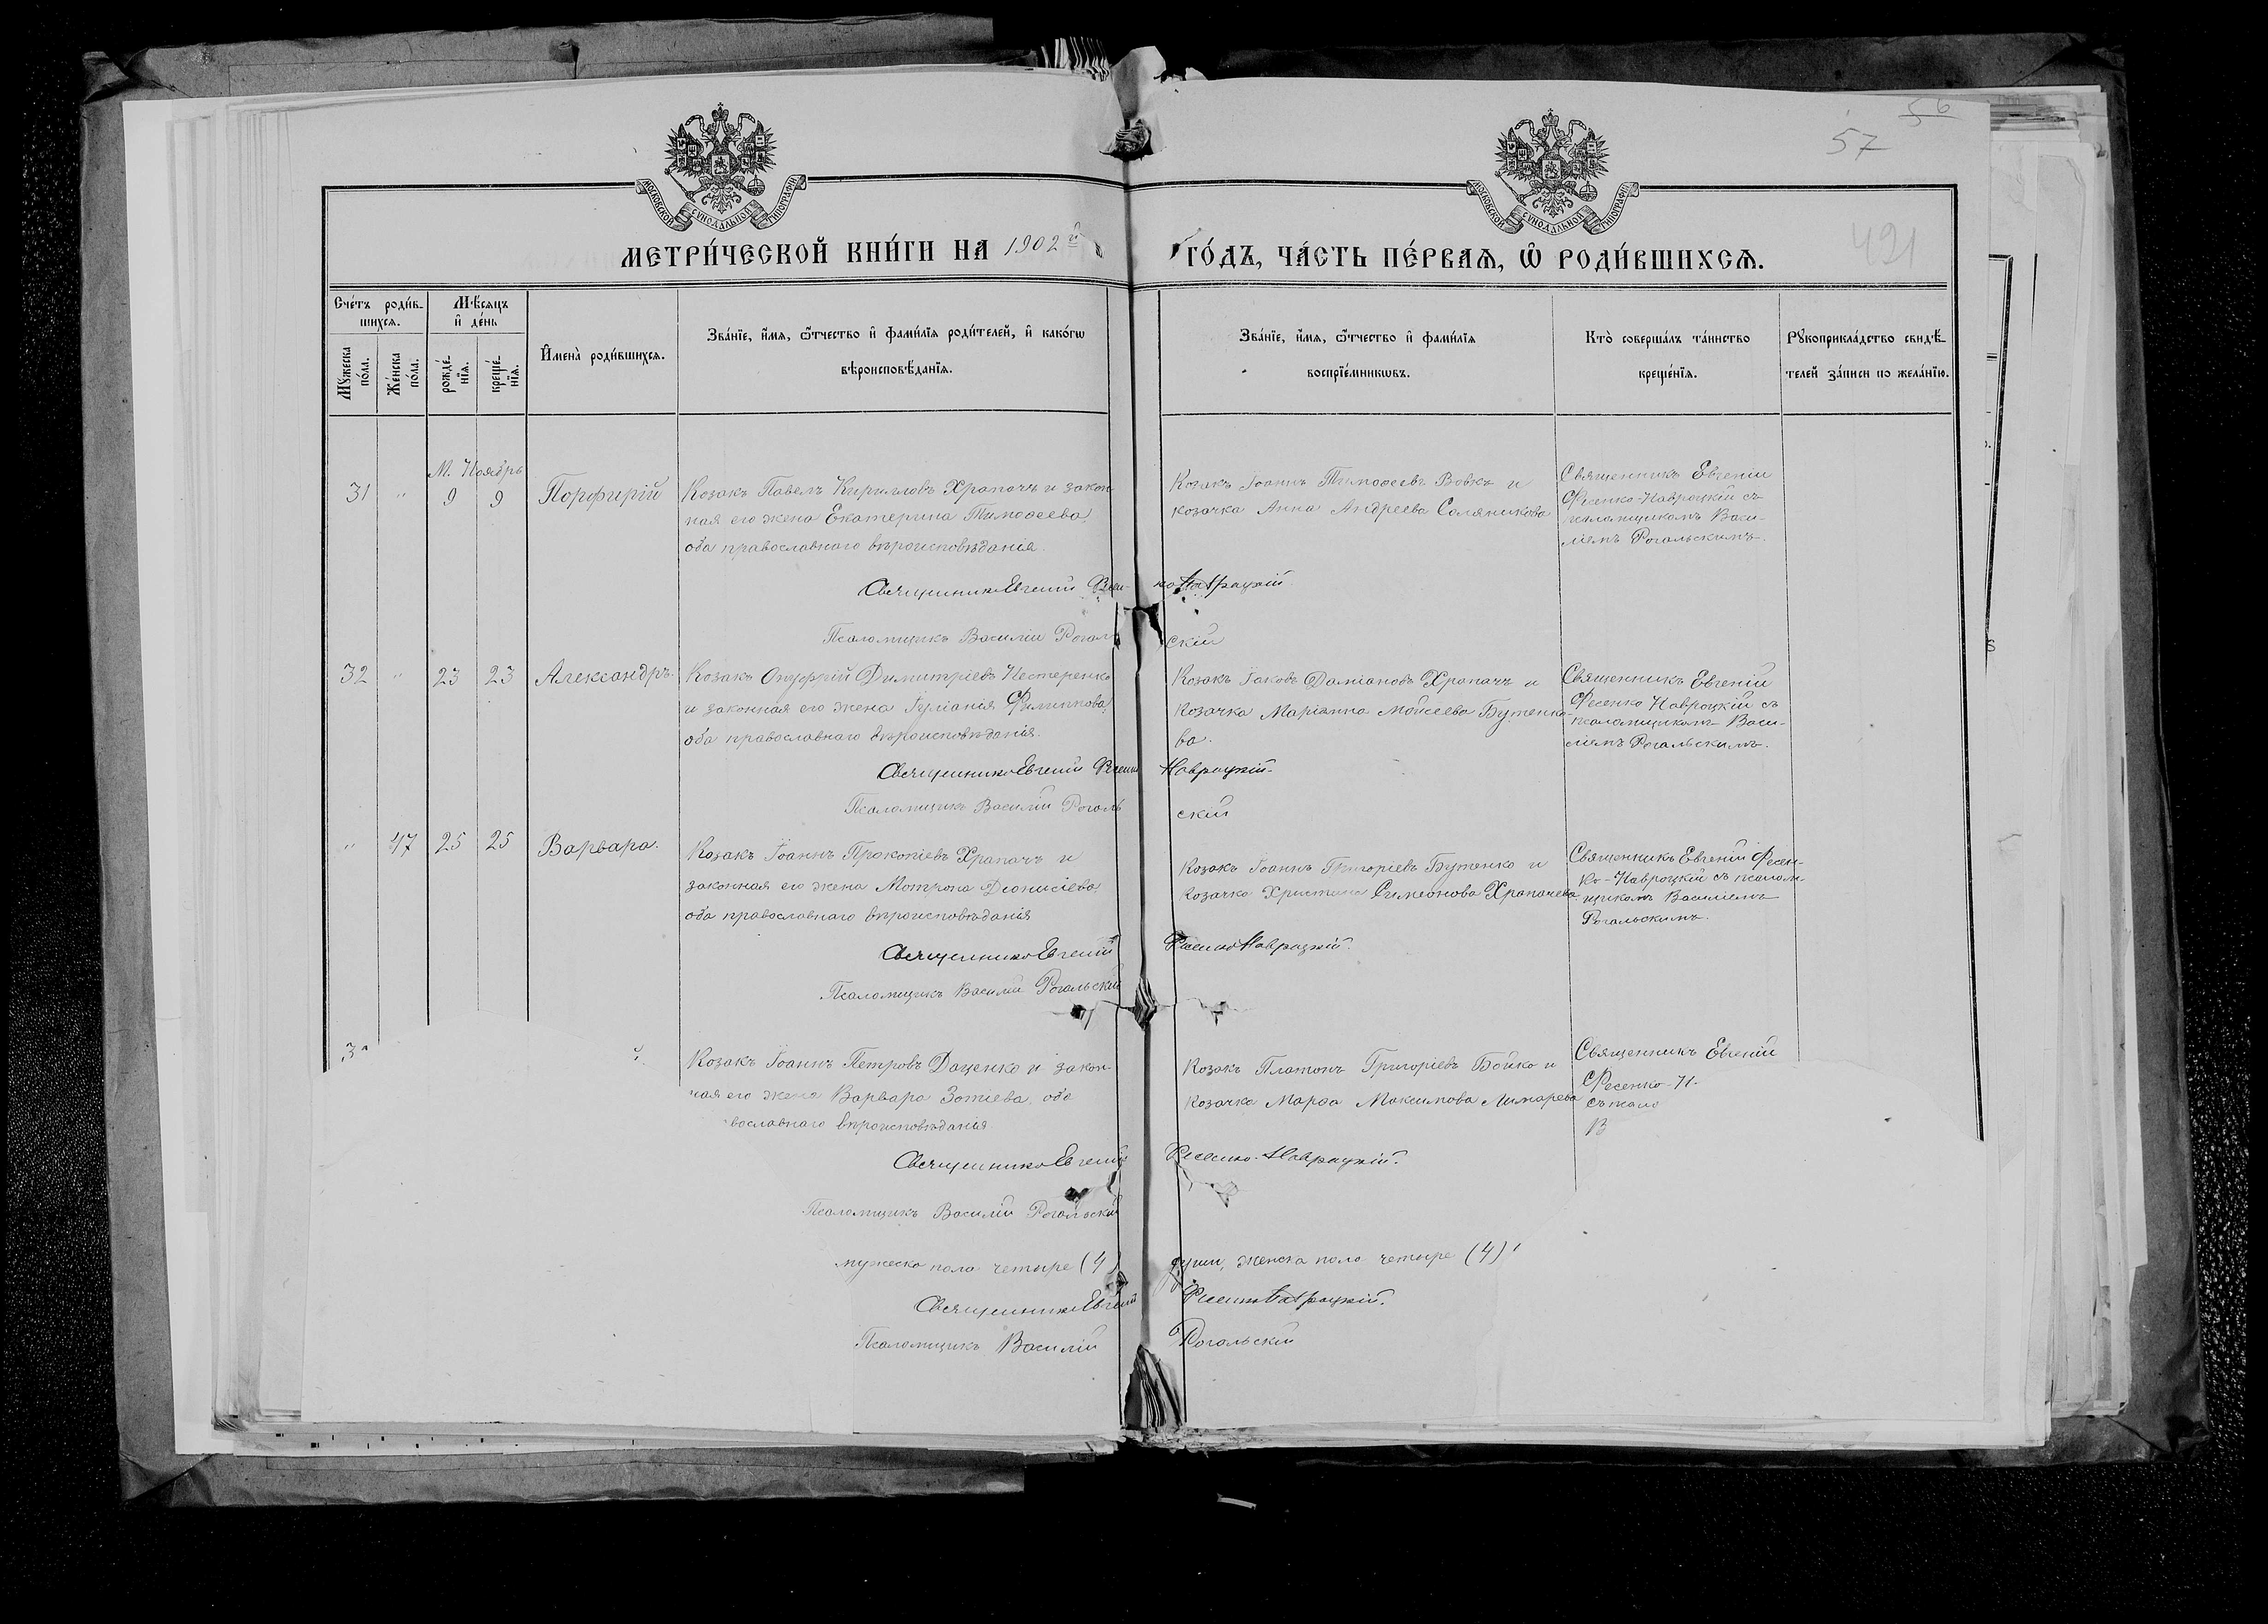 56
57
421
МОСКОВСКОЙ СѴНОДАЛЬНОЙ ТИПОГРАФІИ
МОСКОВСКОЙ СѴНОДАЛЬНОЙ ТИПОГРАФІИ
МЕТРИ́ЧЕСКОЙ КНИ́ГИ НА 1902й ГО́ДЪ, ЧА́СТЬ ПЕ́РВАѦ, Ѡ҆ РОДИ́ВШИХСѦ.
Сче́тъ роди́в-
шихсѧ.
Мꙋ́жеска по́ла.
Же́нска по́ла.
Мѣ́сѧцъ
и҆ де́нь
рожде́-нїѧ.
креще́-нїѧ.
И҆мена̀ роди́вшихсѧ.
Зва́нїе, и҆́мѧ, ѻ҆́тчество и҆ фами́лїѧ роди́телей, и҆ како́гѡ
вѣроисповѣ́данїѧ.
Зва́нїе, и҆́мѧ, ѻ҆́тчество и҆ фами́лїѧ
воспрїе́мникѡвъ.
Кто̀ соверша́лъ та́инство
креще́нїѧ.
Рꙋкоприкла́дство свидѣ́-
телей за́писи по жела́нїю.
М. Ноябрь
31 " 9 9 Порфирій
Козакъ Павелъ Кирилловъ Храпачъ и закон-
ная его жена Екатерина Тимоѳеева,
оба православнаго вѣроисповѣданія.
Козакъ Іоаннъ Тимоѳеевъ Вовкъ и
козачка Анна Андреева Соляникова
Священникъ Евгеній
Фесенко-Навроцкій съ
псаломщикомъ Васи-
ліемъ Рогальскимъ.
Священникъ Евгеній Фесен-ко-Навроцкій.
Псаломщикъ Василій Рогальскій
32 " 23 23 Александръ.
Козакъ Онуфрій Димитріевъ Нестеренко
и законная его жена Іуліанія Филиппова,
оба православнаго вѣроисповѣданія.
Козакъ Іаковъ Даміановъ Храпачъ и
козачка Маріанна Моисеева Бутенко-
ва.
Священникъ Евгеній
Фесенко Навроцкій съ
псаломщикомъ Васи-
ліемъ Рогальскимъ.
Священникъ Евгеній Фесенко Навроцкій.
Псаломщикъ Василій Рогальскій
" 47 25 25 Варвара.
Козакъ Іоаннъ Прокопіевъ Храпачъ и
законная его жена Мотрона Діонисіева,
оба православнаго вѣроисповѣданія
Козакъ Іоаннъ Григоріевъ Бутенко и
козачка Христина Симеонова Храпачева
Священникъ Евгеній Фесен-
ко-Навроцкій съ псалом-
щикомъ Василіемъ
Рогальскимъ.
Священникъ Евгеній Фесенко Навроцкій.
Псаломщикъ Василій Рогальскій
3
Козакъ Іоаннъ Петровъ Даценко и закон-
ная его жена Варвара Зотіева, оба
вославнаго вѣроисповѣданія
Козакъ Платонъ Григоріевъ Бойко и
козачка Марѳа Максимова Лимарева
Священникъ Евгеній
Фесенко-Н-
съ псало
В
Священникъ Евгеній Фесенко-Навроцкій.
Псаломщикъ Василій Рогальскій
мужеска пола четыре (4) души, женска пола четыре (4)
Священникъ Евгеній Фесенко Навроцкій.
Псаломщикъ Василій Рогальскій